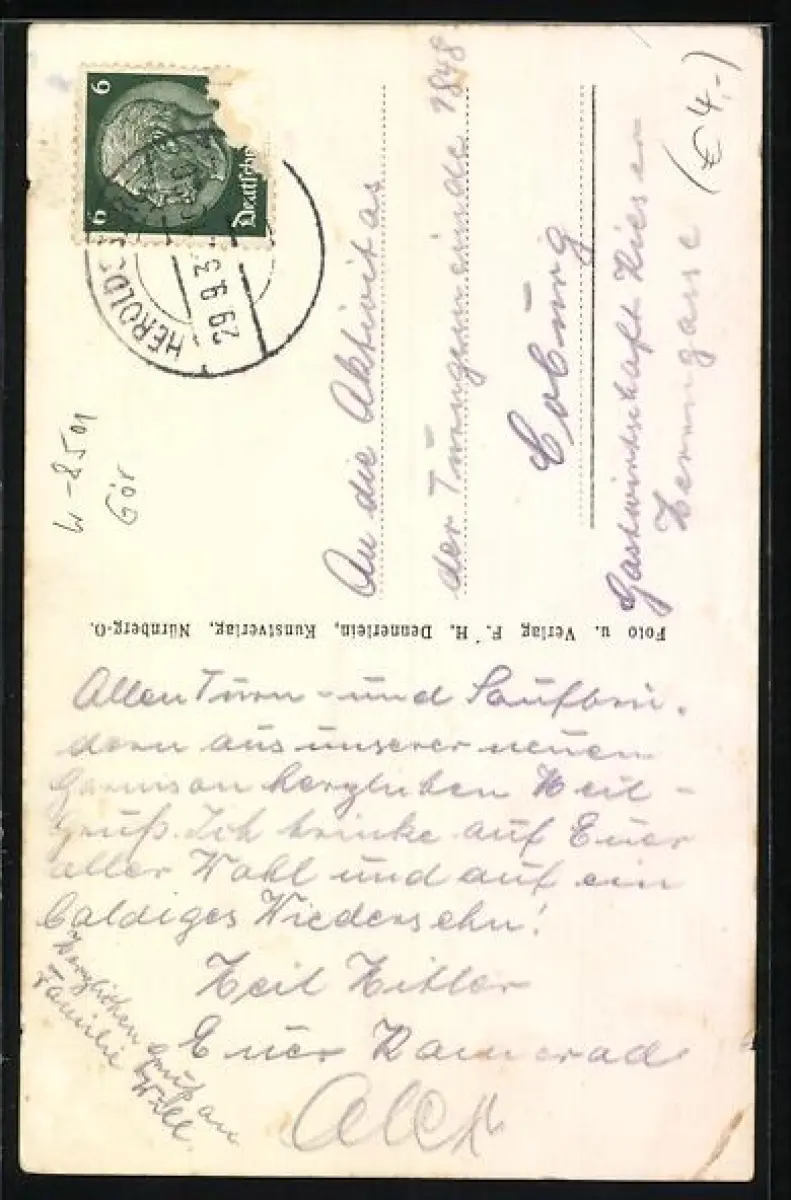 6 6
Deutsche
HEROLDS
29.9.3
An die Aktivitas
der Turngemeinde 1848
Coburg
Gastwirtschaft Kieser
Herrngasse
(€ 4.-)
W-8501
Gör
Foto u. Verlag F. H. Dennerlein, Kunstverlag, Nürnberg-O.
Allen Turn- und Saufbrü-
dern aus unserer neuen
Garnison herzlichen Heil-
gruß. Ich trinke auf Euer
aller Wohl und auf ein
baldiges Wiedersehn!
Heil Hitler
Euer Kamerad
Alex
Herzlichen Gruß an
Familie Will